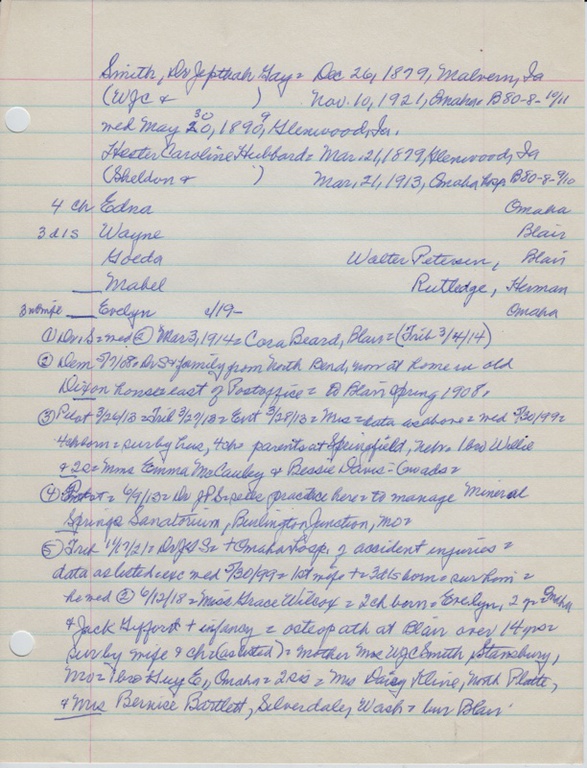 Smith, Dr Jepthah Gay = Dec 26, 1879, Malvern, Ia
(WJC & ) Nov. 10, 1921, Omaha = B80-8-10/11
30 9
wed May 20, 1890, Glenwood, Ia.
Hester Caroline Hubbard = Mar. 21, 1879, Glenwood, Ia
(Sheldon & ) Mar. 21, 1913, Omaha Hosp B80-8-9/10
4 ch Edna Omaha
3 d 1 s Wayne Blair
Golda Walter Petersen, Blair
Mabel Rutledge, Herman
Evelyn 2/19- Omaha
① Dr. S = wed ② Mar 3, 1914 = Cora Beard, Blair = (Trib 3/4/14)
② Dem 5/7/08 = Dr S & family from North Bend, now at home in old
Dixon house east of Postoffice = to Blair Spring 1908.
③ Pilot 3/26/13 = Trib 3/27/13 = Ent 3/28/13 = Mrs = data as above = wed 5/30/99 =
4 ch born = sur by hus, 4 ch = parents at Springfield, Nebr = 1 bro Willie
& 2 s = Mmes Emma McCauley & Bessie Davis =
④ = 6/9/13 = Dr JGS = sells practice here = to manage Mineral
Springs Sanatorium, Burlington Junction, Mo =
⑤ Trib 11/17/21 = Dr JGS = + Omaha Hosp. of accident injuries =
data as listed exc wed 5/30/99 = 1st wife + = 3 d 1 s born = sur him =
he wed ③ 6/12/18 = Miss Grace Wilcox = 2 ch born = Evelyn, 2 yr Omaha
& Jack Gifford + infancy = osteopath at Blair over 14 yrs =
sur by wife & ch (as listed) = Mother Mrs WJC Smith, Stansbury,
Mo = 1 bro Guy E, Omaha = 2 sis = Mrs Daisy Kline, North Platte,
& Mrs Bernice Bartlett, Silverdale, Wash = bur Blair